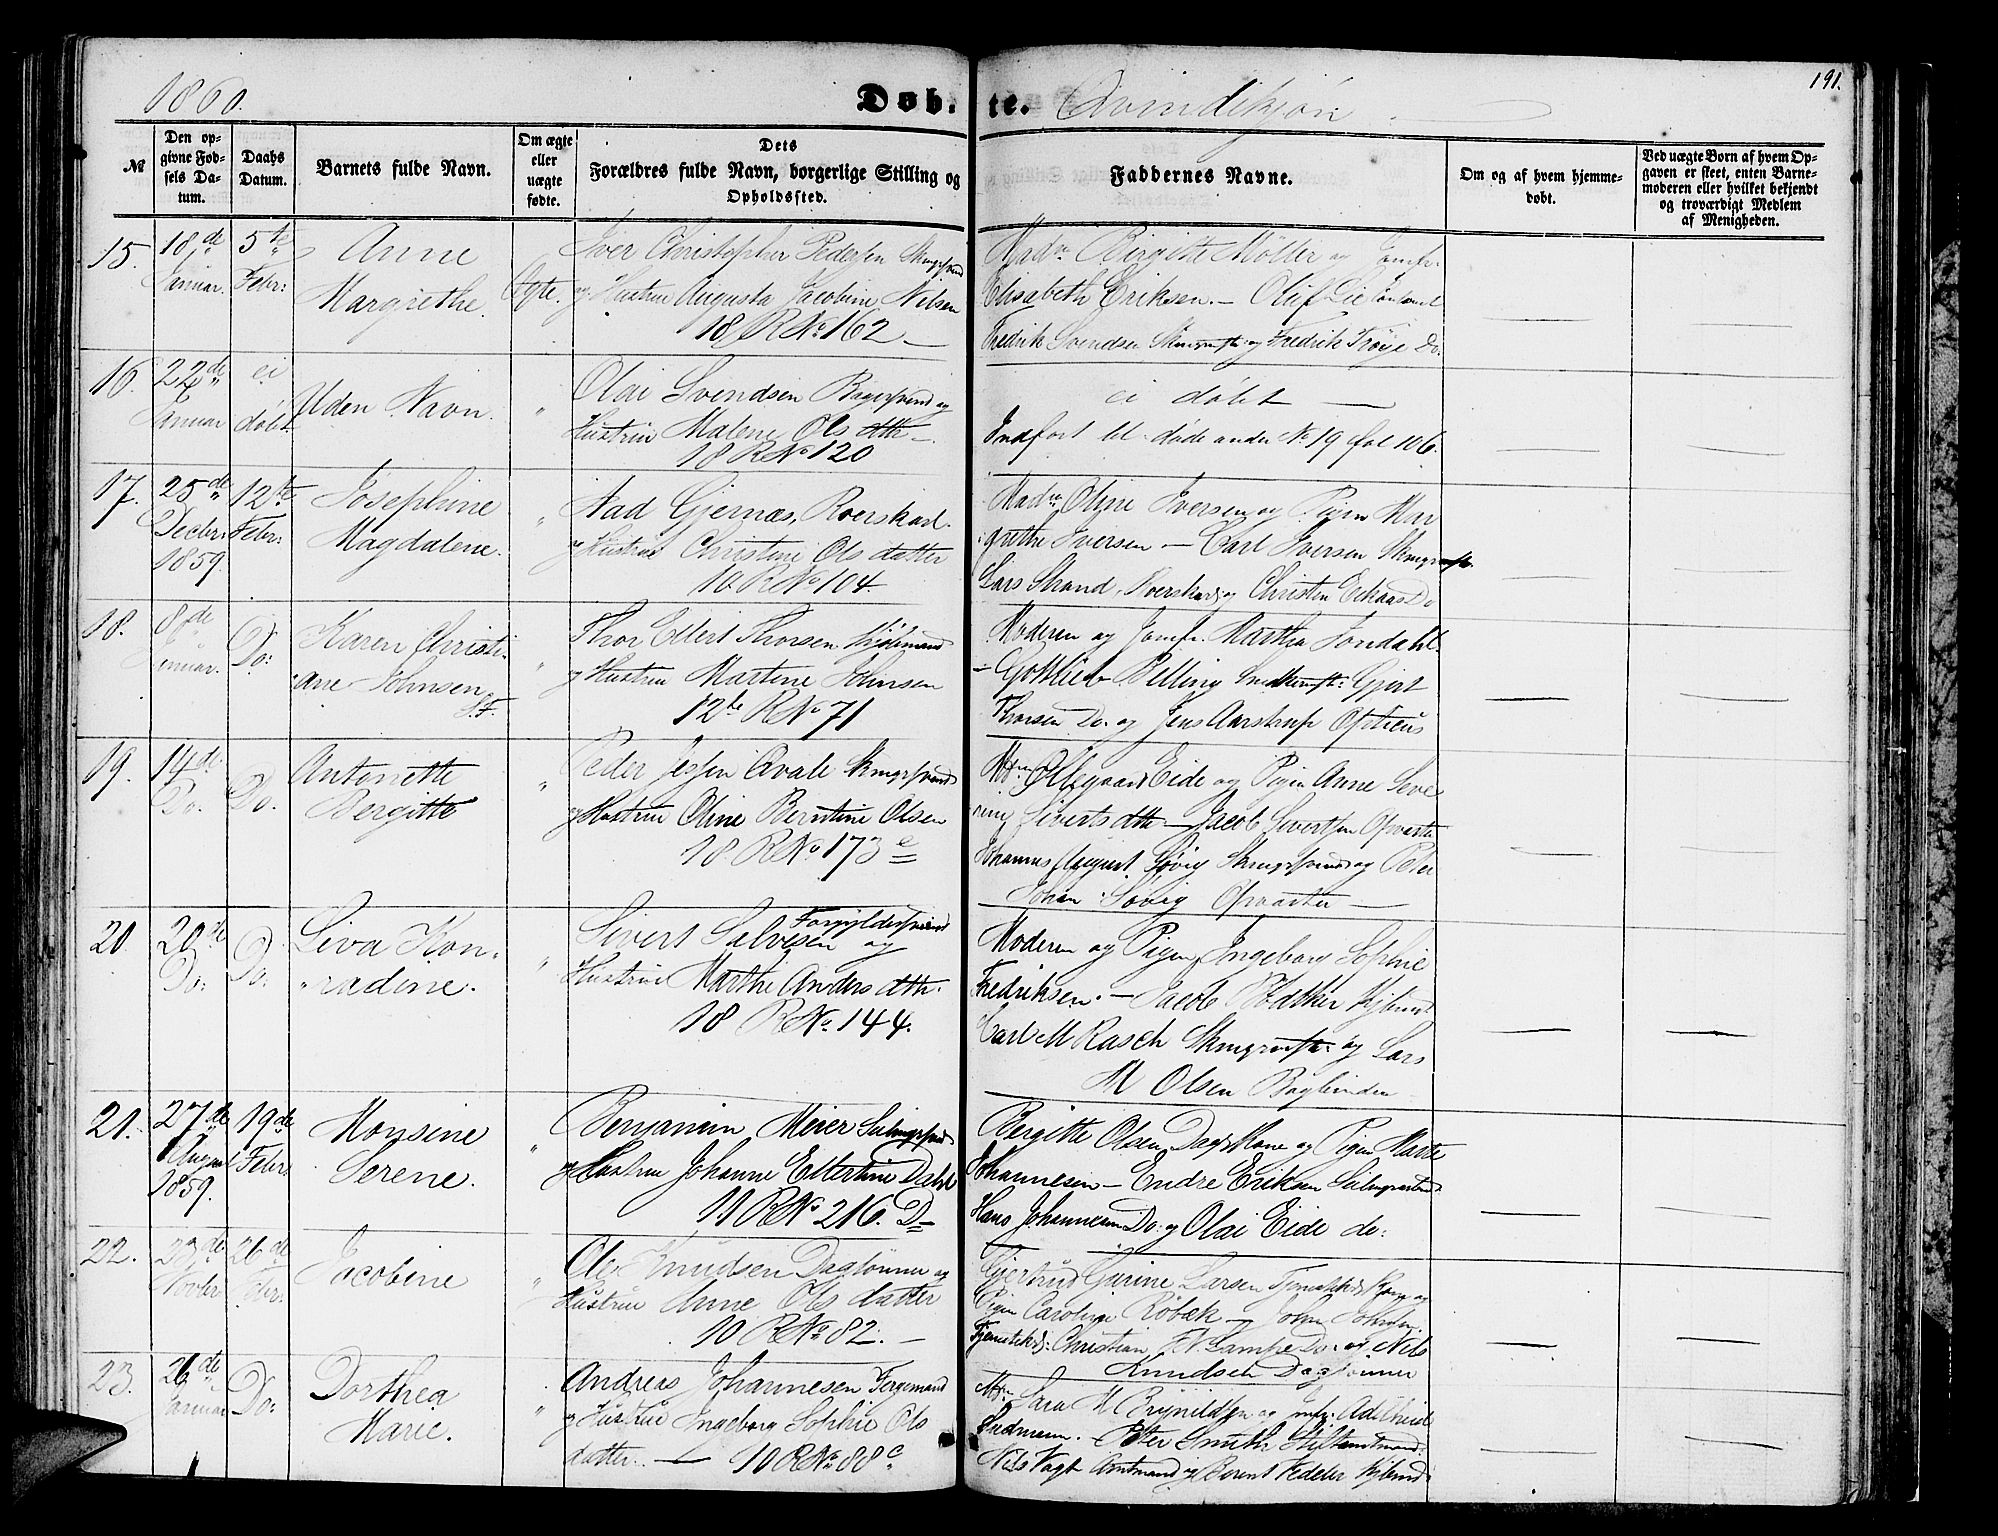 1860.
Døb-te. Qvindekjøn
191.
№
Den op-
givne Fød-
sels Da-
tum.
Daabs
Datum.
Barnets fulde Navn.
Om ægte
eller
uægte
fødte.
Dets
Forældres fulde Navn, borgerlige Stilling og
Opholdssted.
Faddernes Navne.
Om og af hvem hjemme-
døbt.
Ved uægte Børn af hvem Op-
gaven er skeet, enten Barne-
moderen eller hvilket bekjendt
og troværdigt Medlem
af Menigheden.
15.
18de
Januar.
5te
Febr:
Anne
Margrethe.
Ægte.
Iver Christopher Pedersen
og Hustrue Augusta Jacobine Nilsen
18 R No 162
Madm Birgitte Möller og Jomfr.
Elisabeth Eriksen. — Oluf Lie
Fredrik Svendsen og Fredrik Trøye Do.
16.
22de
Januar
ei
døbt
Uden Navn.
"
Olai Svendsen Bagersvend og
Hustrue Malene Ols dtr
18 R No 120
ei døbt —
Indført bl. døde under No 19 fol 106.
17.
25de
Decbr.
1859.
12te
Febr:
Josephine
Magdalene.
"
Aad Gjernæs, Roerskarl.
og Hustrue Christine Ols datter
10 R No 104.
Madm Oline Iversen og Pigen Mar
grethe Iversen — Carl Iversen
Lars Strand, Roerskarl og Christen Do
18.
8de
Januar.
Do:
Karen Christi-
ane Johnsen
S.F.
"
Thor Ellert Thorsen Kjøbmand
og Hustrue Martine Johnsen
12te R No 71
Moderen og Jomfr. Martha Jondahl
— Gottlieb Pelling Gjert
Thorsen Do. og Jens Aarstrup Opticus
19.
14de
Do.
Do.
Antonette
Bergitte
"
Peder Jessen Qvale
og Hustrue Oline Berntine Olsen
18. R No 173 c
Ollegaard Eide og Pigen Anne Seve
rine Siverts dtr — Jacob Sivertsen Opvarter
Johannes August Søvig og Peter
Johan Søvig Opvarter —
20.
20de
Do:
Do:
Siva Kon-
radine.
"
Sivert Salvesen Forgyldersvend og
Hustrue Marthe Anders dtr.
18 R No. 144.
Moderen og Pigen Ingeborg Sophie
Fredriksen. — Jacob Bødtker
Carl M Rasch og Lars
M Olsen Bogbinder
21.
27de
August
1859.
19de
Febr:
Monsine
Serene.
"
Benjamin Meier
og Hustrue Johanne Ellertine Dahl
11 R No 216. D
Bergitte Olsen Dags Kone og Pigen Marte
Johannesen — Endre Eriksen
Hans Johannesen Do: og Olai Eide do:
22.
23de
Novbr
26de
Febr:
Jacobine
"
Ole Knudsen Daglønner og
Hustrue Anne Ols datter
10 R No 82. —
Gjertrud Gurine Larsen
Pigen Caroline Røbæk — John Johnsen
Christian Lampe Do: og Nils
Knudsen Daglønner
23.
26de
Januar
Do:
Dorthea
Marie.
"
Andreas Johannesen Færgemand
og Hustrue Ingeborg Sophie Ols
datter. — 10 R No 88 c
Sara M Brynildsen og Jmfr. Adelheid
Peter Smith Stiftamtmand
Nils Vogt Amtmand og Berent Feddeler